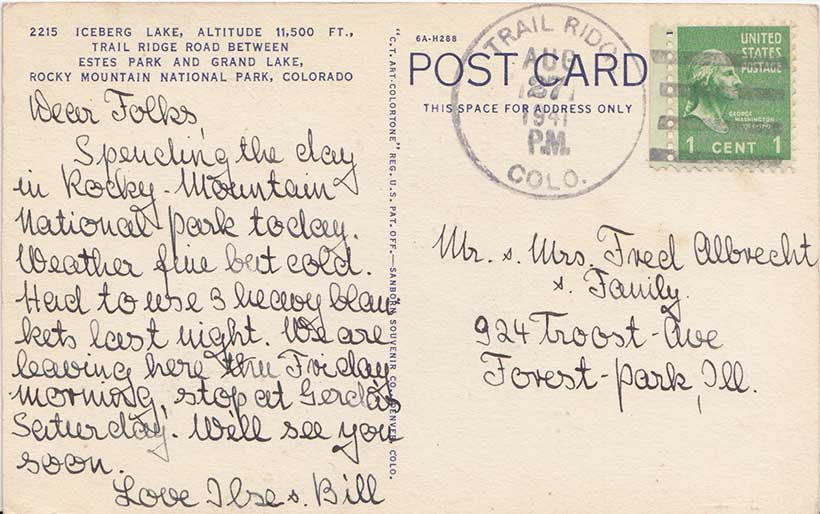 2215 ICEBERG LAKE, ALTITUDE 11,500 FT.,
TRAIL RIDGE ROAD BETWEEN
ESTES PARK AND GRAND LAKE,
ROCKY MOUNTAIN NATIONAL PARK, COLORADO
Dear Folks,
Spending the day
in Rocky-Mountain
National park today.
Weather fine but cold.
Had to use 3 heavy blan
kets last night. We are
leaving here thu Friday
morning, stop at Gerda's
Saturday. Will see you
soon.
Love Ilse & Bill
"C.T. ART-COLORTONE" REG. U.S. PAT. OFF.—SANBORN SOUVENIR CO., DENVER, COLO.
6A-H288
POST CARD
THIS SPACE FOR ADDRESS ONLY
TRAIL RIDG
AUG
27
1941
P.M.
COLO.
UNITED
STATES
POSTAGE
GEORGE
WASHINGTON
1 CENT 1
Mr. & Mrs. Fred Albrecht
& Family.
924 Troost-Ave
Forest-park, Ill.